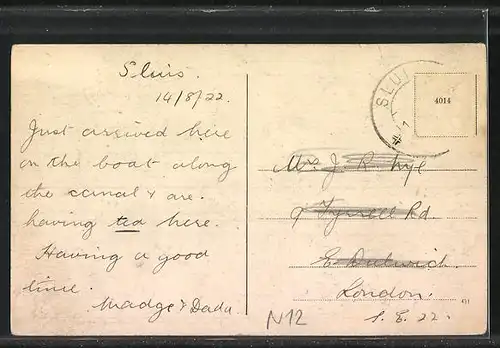 Sluis.
14/8/22.
Just arrived here
on the boat along
the canal & are
having tea here.
Having a good
time.
Madge & Dada
SLUI
4014
Mrs J R. Nye
9 Tyrrell Rd.
E Dulwich.
London.
S.E. 22.
N12